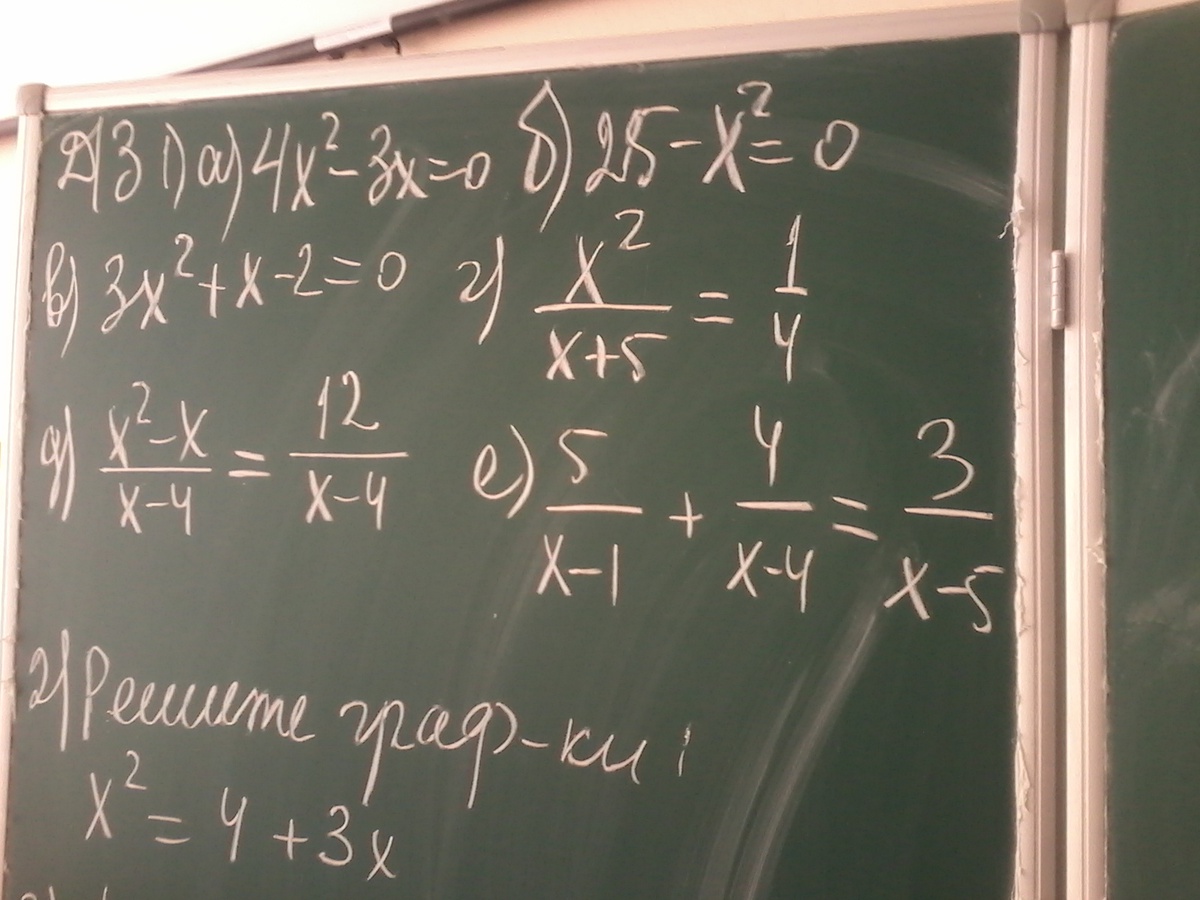 Д/З 1) а) 4x² - 3x = 0 б) 25 - x² = 0
в) 3x² + x - 2 = 0 г) x²/(x+5) = 1/4
д) (x² - x)/(x - 4) = 12/(x - 4) е) 5/(x-1) + 4/(x-4) = 3/(x-5)
2) Решите граф-ки:
x² = 4 + 3x